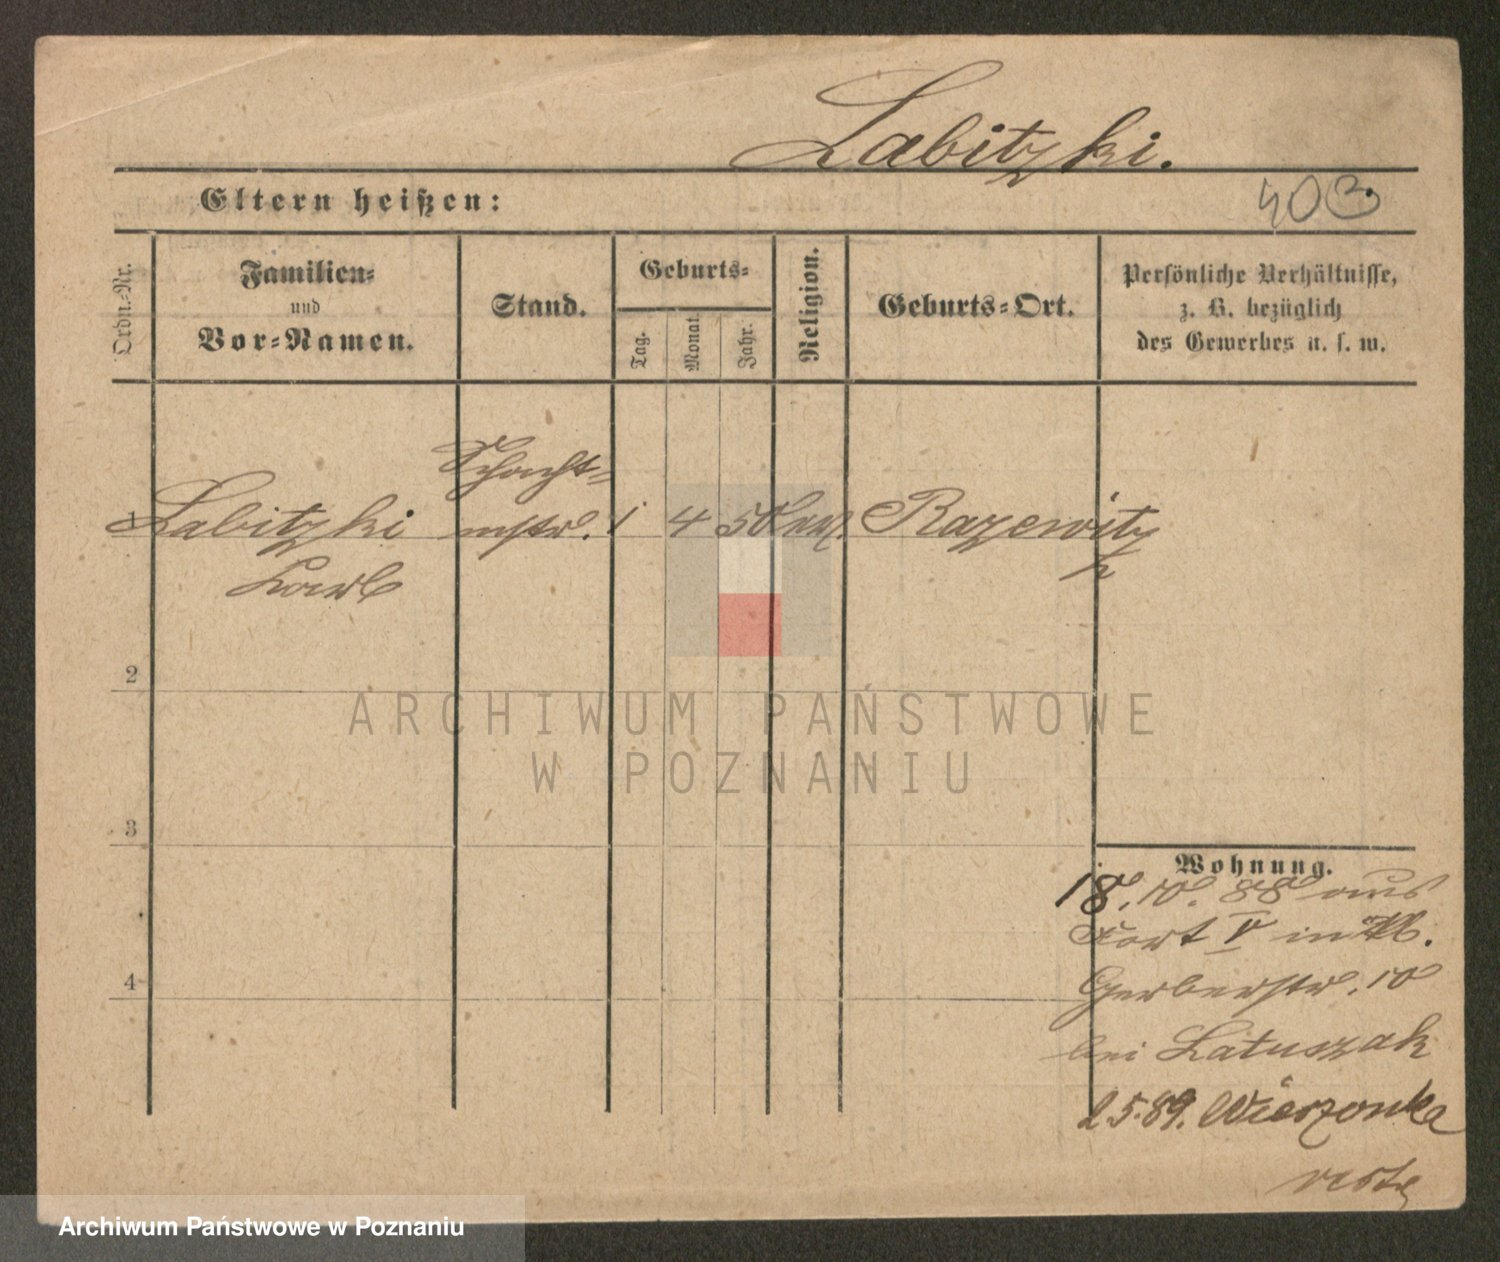 Labitzki.
Eltern heißen:
403.
Ordn.-Nr.
Familien-
und
Vor-Namen.
Stand.
Geburts-
Tag.
Monat.
Jahr.
Religion.
Geburts-Ort.
Persönliche Verhältnisse,
z. B. bezüglich
des Gewerbes u. s. w.
Schacht-
1 Labitzki mstr. 1 4 50 Razewitz
Karl
2
3
4
Wohnung.
18. 10. 88 aus
Fort V in
Gerberstr. 10
bei Latuszak
2.5.89. Wierzonka
ARCHIWUM PAŃSTWOWE
W POZNANIU
Archiwum Państwowe w Poznaniu